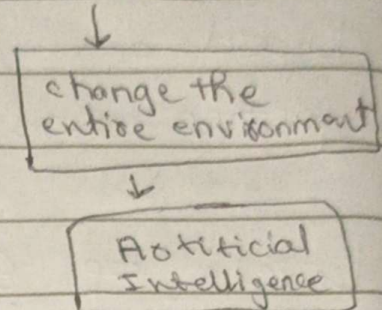 change the
entire environment
Artificial
Intelligence